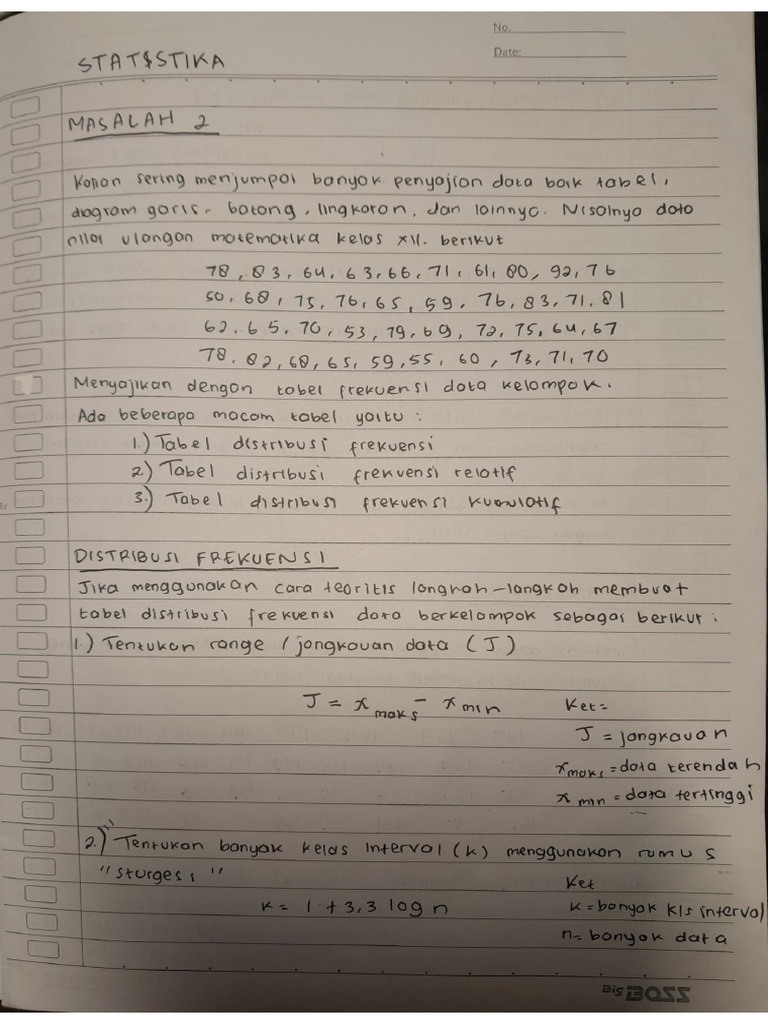 No.
Date:
STATISTIKA
MASALAH 2
Kalian sering menjumpai banyak penyajian data baik tabel,
diagram garis, batang, lingkaran, dan lainnya. Misalnya data
nilai ulangan matematika kelas XII. berikut
78, 83, 64, 63, 66, 71, 61, 80, 92, 76
50, 68, 75, 76, 65, 59, 76, 83, 71, 81
62, 65, 70, 53, 79, 69, 72, 75, 64, 67
78, 82, 68, 65, 59, 55, 60, 73, 71, 70
Menyajikan dengan tabel frekuensi data kelompok.
Ada beberapa macam tabel yaitu :
1.) Tabel distribusi frekuensi
2.) Tabel distribusi frekuensi relatif
3.) Tabel distribusi frekuensi kumulatif
DISTRIBUSI FREKUENSI
Jika menggunakan cara teoritis langkah-langkah membuat
tabel distribusi frekuensi data berkelompok sebagai berikut :
1.) Tentukan range / jangkauan data (J)
J = x maks - x min Ket =
J = jangkauan
x maks = data terendah
x min = data tertinggi
2.) Tentukan banyak kelas interval (k) menggunakan rumus
"sturgess" Ket
k = 1 + 3,3 log n k = banyak kls interval
n = banyak data
Big BOSS